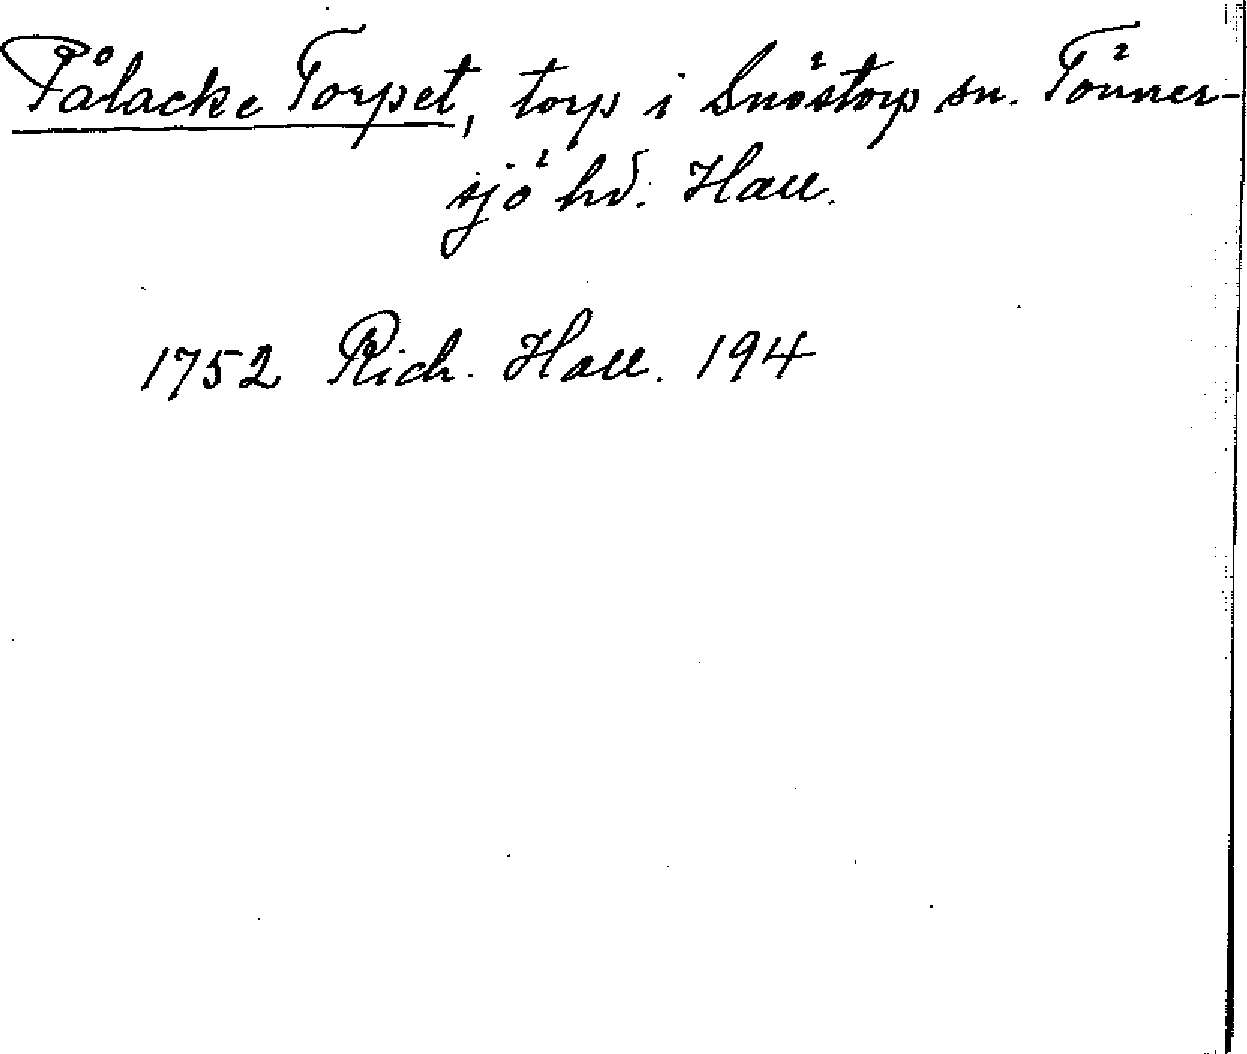 Pålacke Torpet, torp i Snöstorp sn. Tönner-
sjö hd. Hall.
1752 Rich. Hall. 194